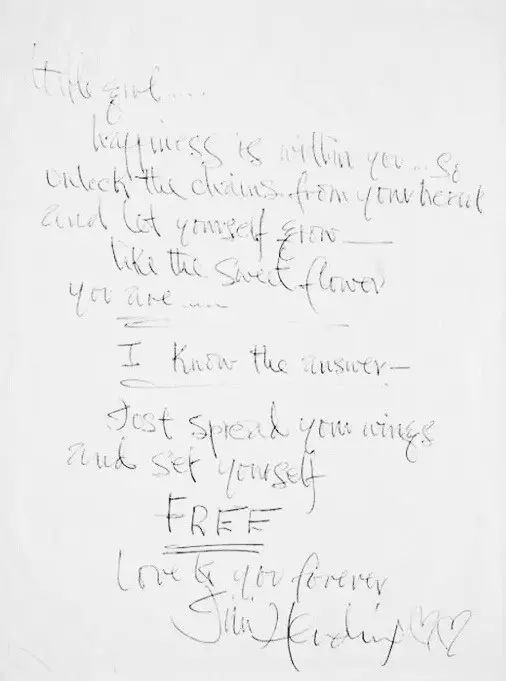 little girl.....
happiness is within you...so
unlock the chains from your heart
and let yourself grow—
like the sweet flower
you are.....
I know the answer—
Just spread your wings
and set yourself
FREE
Love to you forever
Jimi Hendrix ♡♡